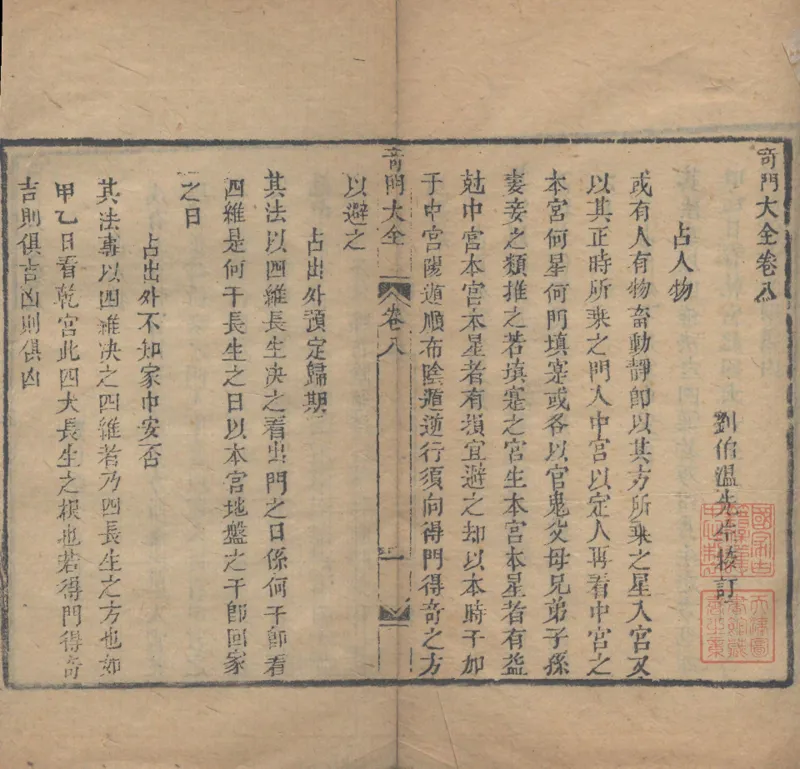 奇門大全卷八
劉伯溫先生校訂
占人物
或有人有物畜動靜卽以其方所乘之星入宮又
以其正時所乘之門入中宮以定人再看中宮之
本宮何星何門填寔或各以官鬼父母兄弟子孫
妻妾之類推之若填寔之宮生本宮本星者有益
尅中宮本宮本星者有損宜避之却以本時干加
于中宮陽遁順布陰遁逆行須向得門得奇之方
奇門大全 卷八 一
以避之
占出外預定歸期
其法以四維長生決之看出門之日係何干卽看
四維是何干長生之日以本宮地盤之干卽回家
之日
占出外不知家中安否
其法專以四維決之四維者乃四長生之方也如
甲乙日看乾宮此四大長生之根也若得門得奇
吉則俱吉凶則俱凶